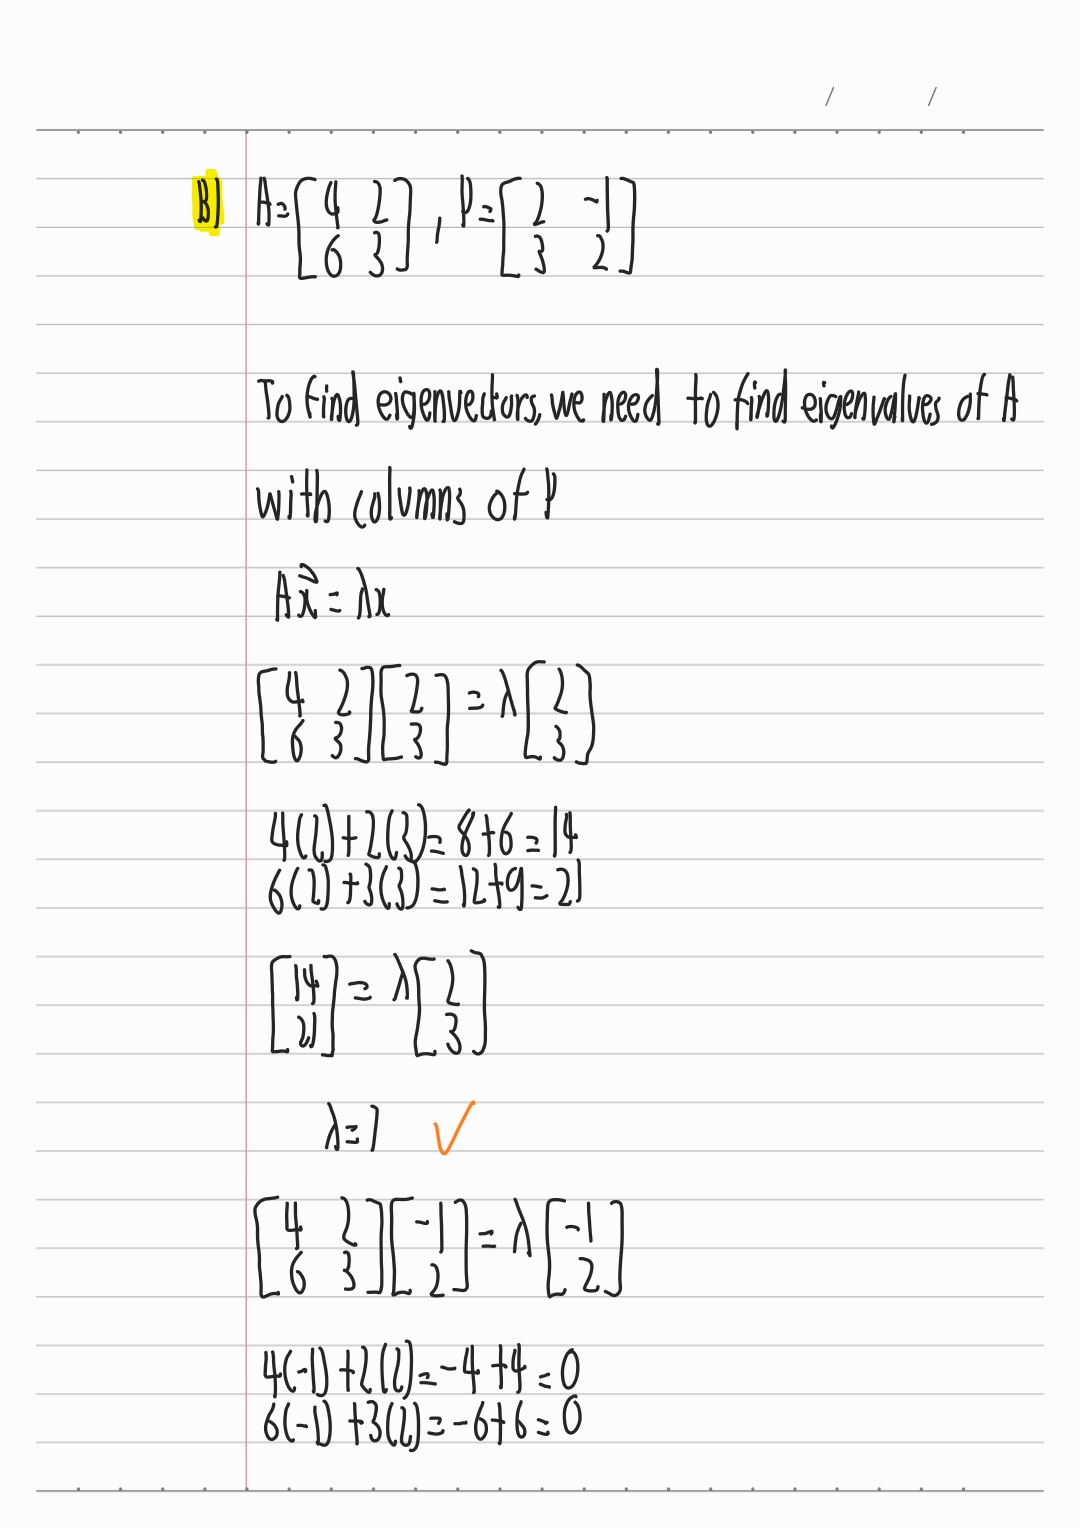 / /
B) A = [ 4 2 ; 6 3 ] , P = [ 2 -1 ; 3 2 ]
To find eigenvectors, we need to find eigenvalues of A
with columns of P
Ax⃗ = λx
[ 4 2 ; 6 3 ] [ 2 ; 3 ] = λ [ 2 ; 3 ]
4(2) + 2(3) = 8 + 6 = 14
6(2) + 3(3) = 12 + 9 = 21
[ 14 ; 21 ] = λ [ 2 ; 3 ]
λ = 7 ✓
[ 4 2 ; 6 3 ] [ -1 ; 2 ] = λ [ -1 ; 2 ]
4(-1) + 2(2) = -4 + 4 = 0
6(-1) + 3(2) = -6 + 6 = 0